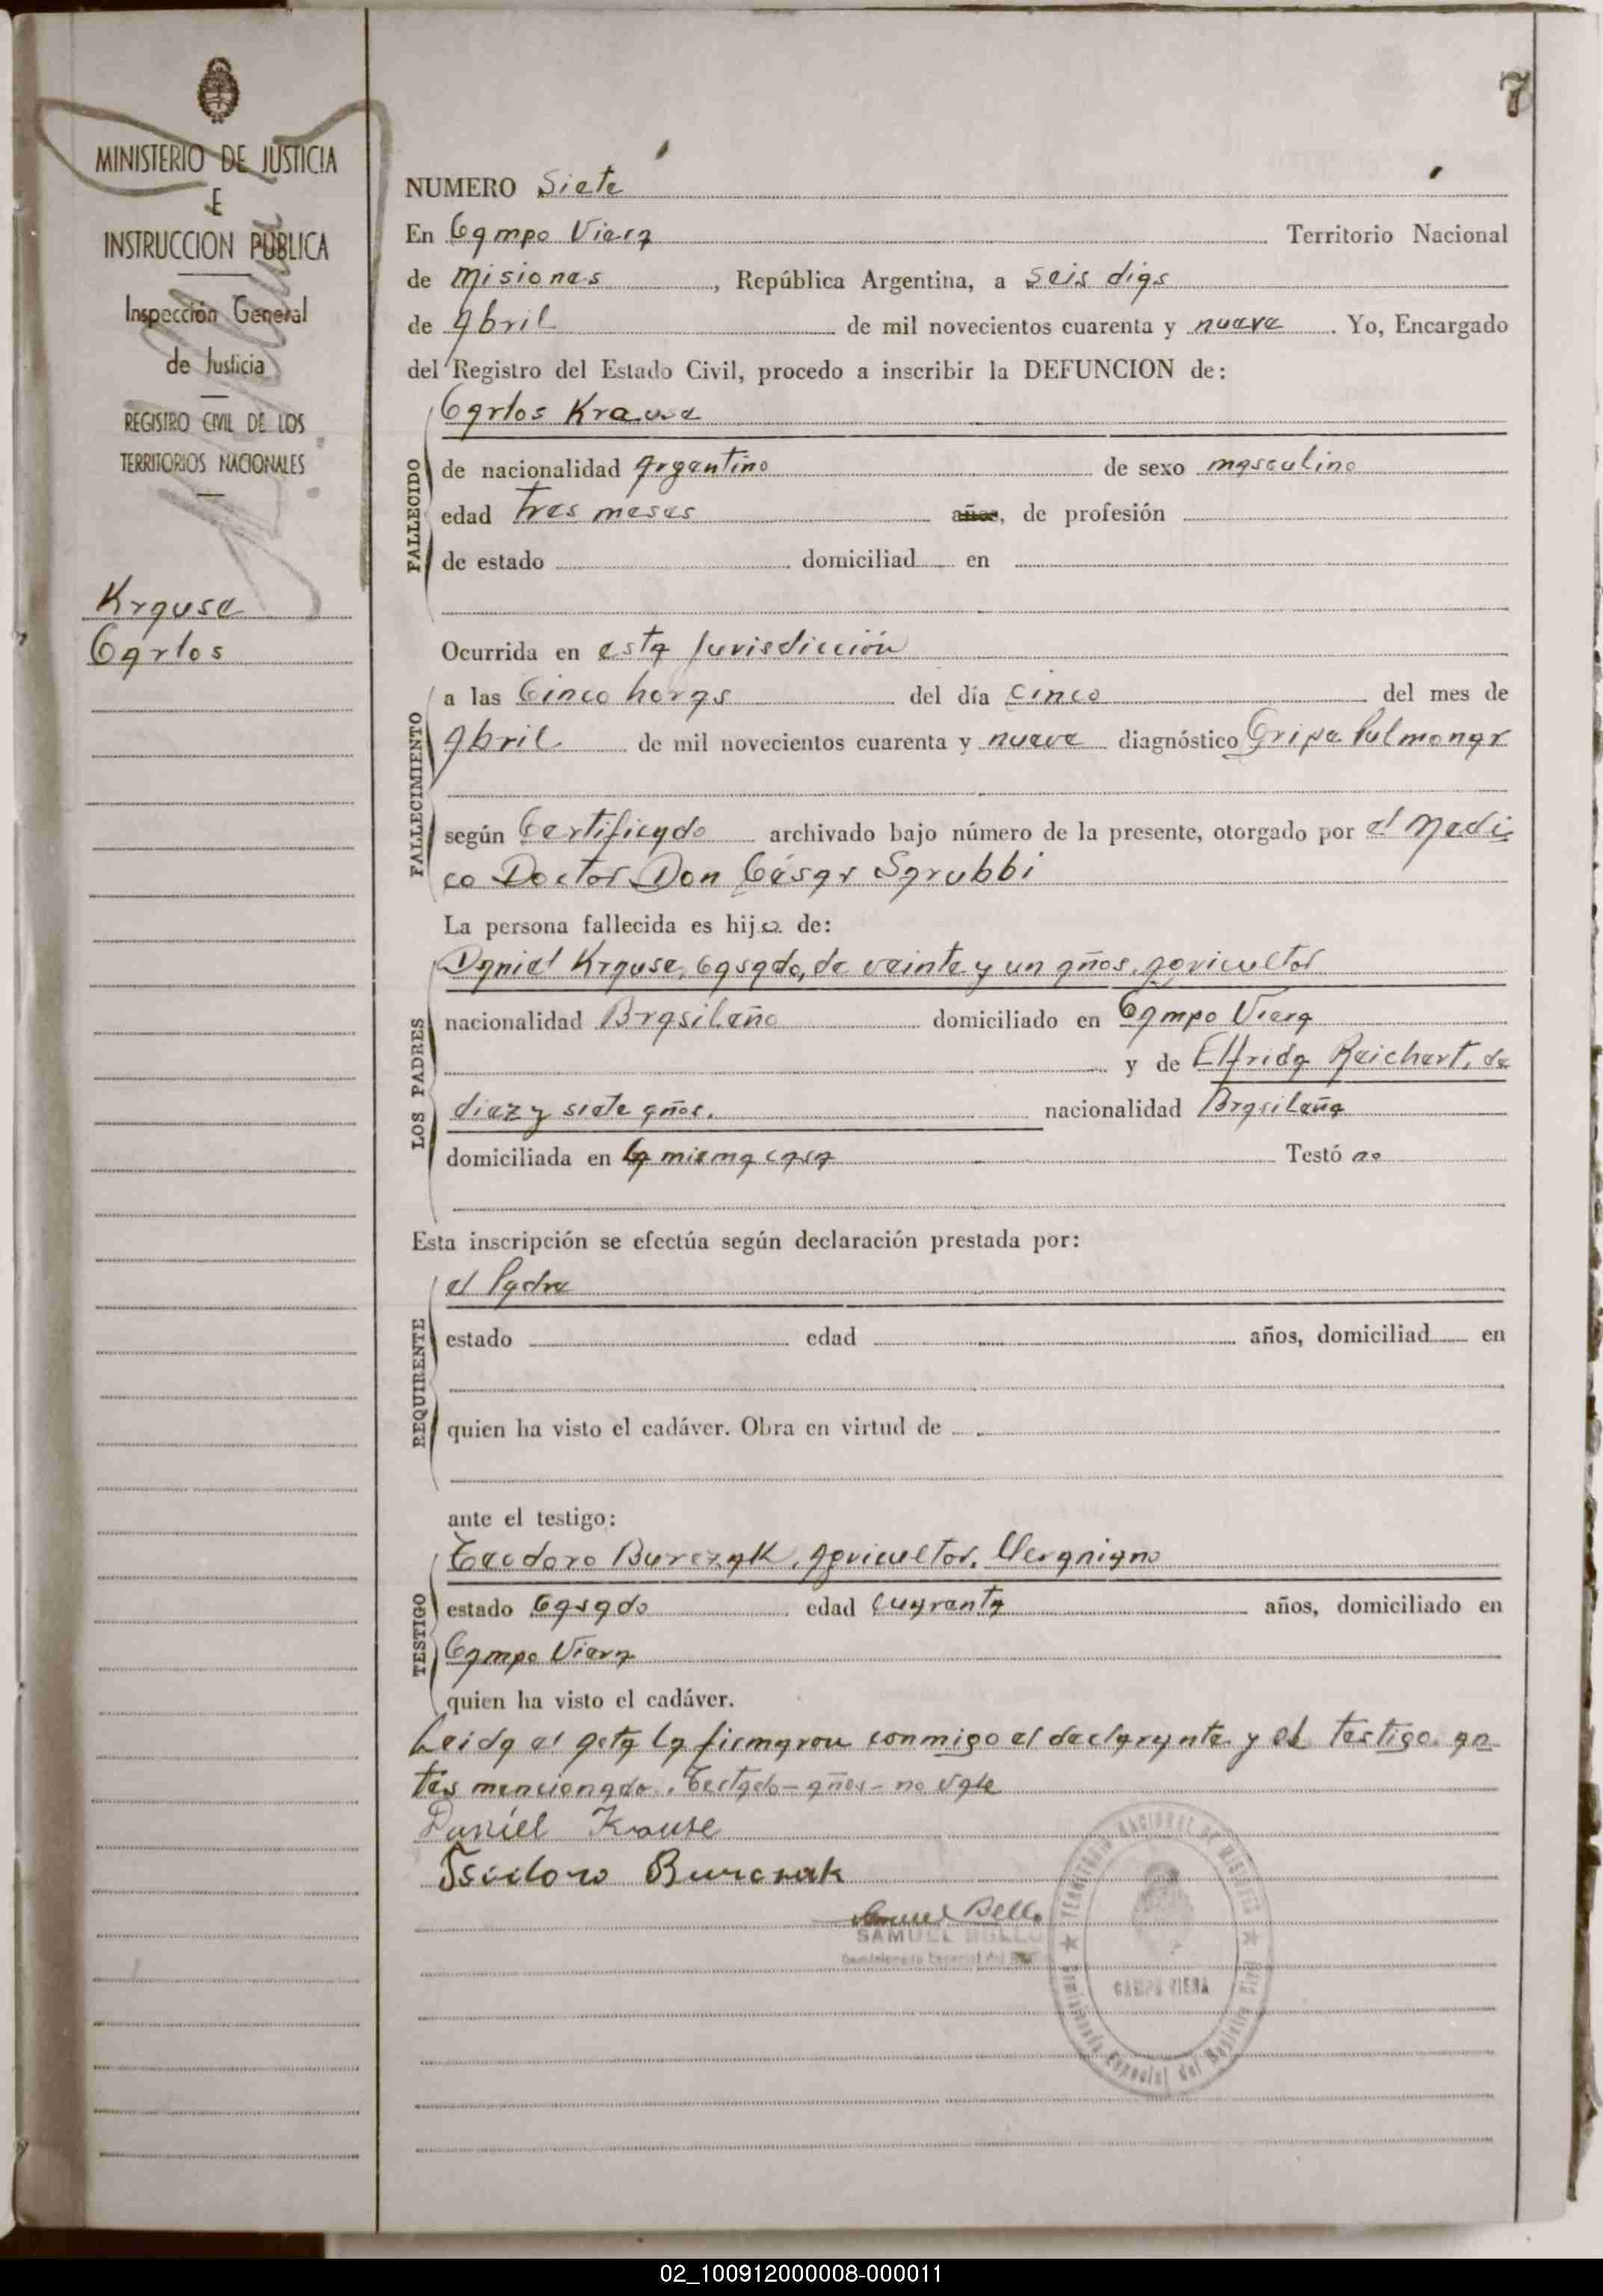 7
MINISTERIO DE JUSTICIA
E
INSTRUCCION PUBLICA
Inspección General
de Justicia
REGISTRO CIVIL DE LOS
TERRITORIOS NACIONALES
Krause
Carlos
NUMERO Siete
En Campo Viera Territorio Nacional
de Misiones, República Argentina, a seis dias
de Abril de mil novecientos cuarenta y nueve. Yo, Encargado
del Registro del Estado Civil, procedo a inscribir la DEFUNCION de:
Carlos Krause
FALLECIDO
de nacionalidad Argentino de sexo masculino
edad tres meses años, de profesión
de estado domiciliad en
Ocurrida en esta Jurisdicción
FALLECIMIENTO
a las Cinco horas del día cinco del mes de
Abril de mil novecientos cuarenta y nueve diagnóstico Gripe Pulmonar
según Certificado archivado bajo número de la presente, otorgado por el Medi
co Doctor Don César Sarubbi
La persona fallecida es hijo de:
LOS PADRES
Daniel Krause, Casado, de veinte y un años, agricultor
nacionalidad Brasileño domiciliado en Campo Viera
y de Elfrida Reichert, de
diez y siete años. nacionalidad Brasileña
domiciliada en la misma casa Testó no
Esta inscripción se efectúa según declaración prestada por:
REQUIRENTE
el Padre
estado edad años, domiciliad en
quien ha visto el cadáver. Obra en virtud de
ante el testigo:
TESTIGO
Teodoro Burczak, agricultor, Ucraniano
estado Casado edad cuarenta años, domiciliado en
Campo Viera
quien ha visto el cadáver.
Leida el acta la firmaron conmigo el declarante y el testigo an
tes mencionado. Testado - años - no vale
Daniel Krause
Burczak
Samuel Bello
SAMUEL BELLO
Comisionado Especial del
TERRITORIO NACIONAL DE MISIONES
CAMPO VIERA
Comisionado Especial del Registro Civil
02_100912000008-000011